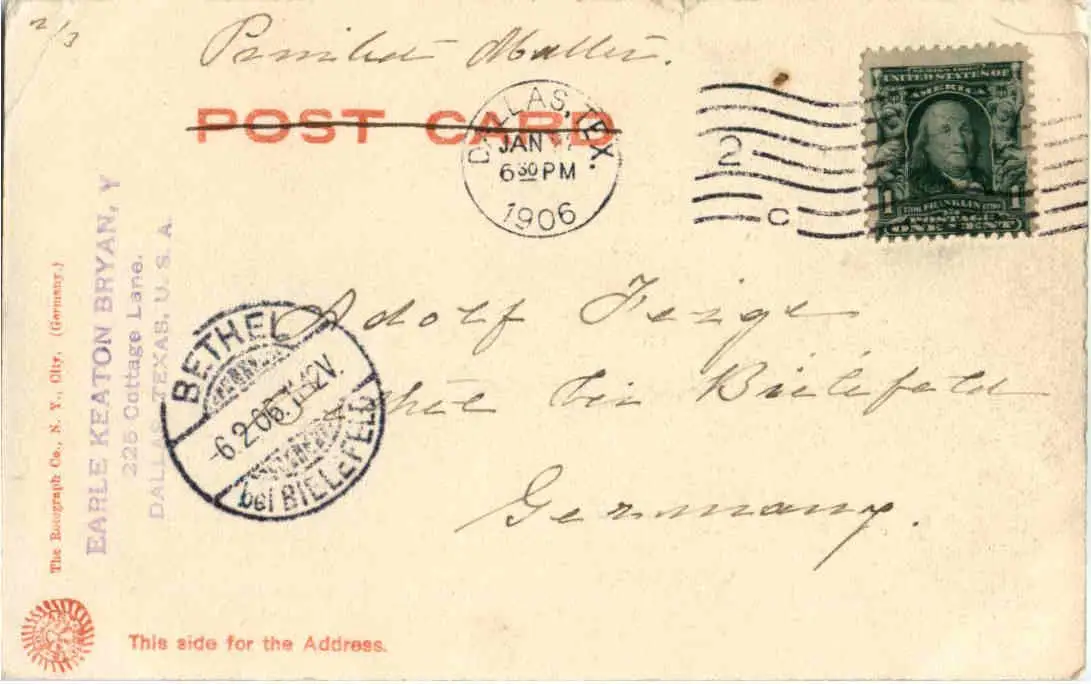 2/3
Printed Matter.
POST CARD
DALLAS, TEX.
JAN
6 30 PM
1906
2
C
SERIES 1902
UNITED STATES OF
AMERICA
1 FRANKLIN 1
POSTAGE
ONE CENT
EARLE KEATON BRYAN, Y
225 Cottage Lane.
DALLAS, TEXAS, U. S. A.
The Rotograph Co., N. Y., City, (Germany.)
BETHEL
6.2.06. 11-12V.
bei BIELEFELD
Adolf Feige
Bethel bei Bielefeld
Germany.
This side for the Address.